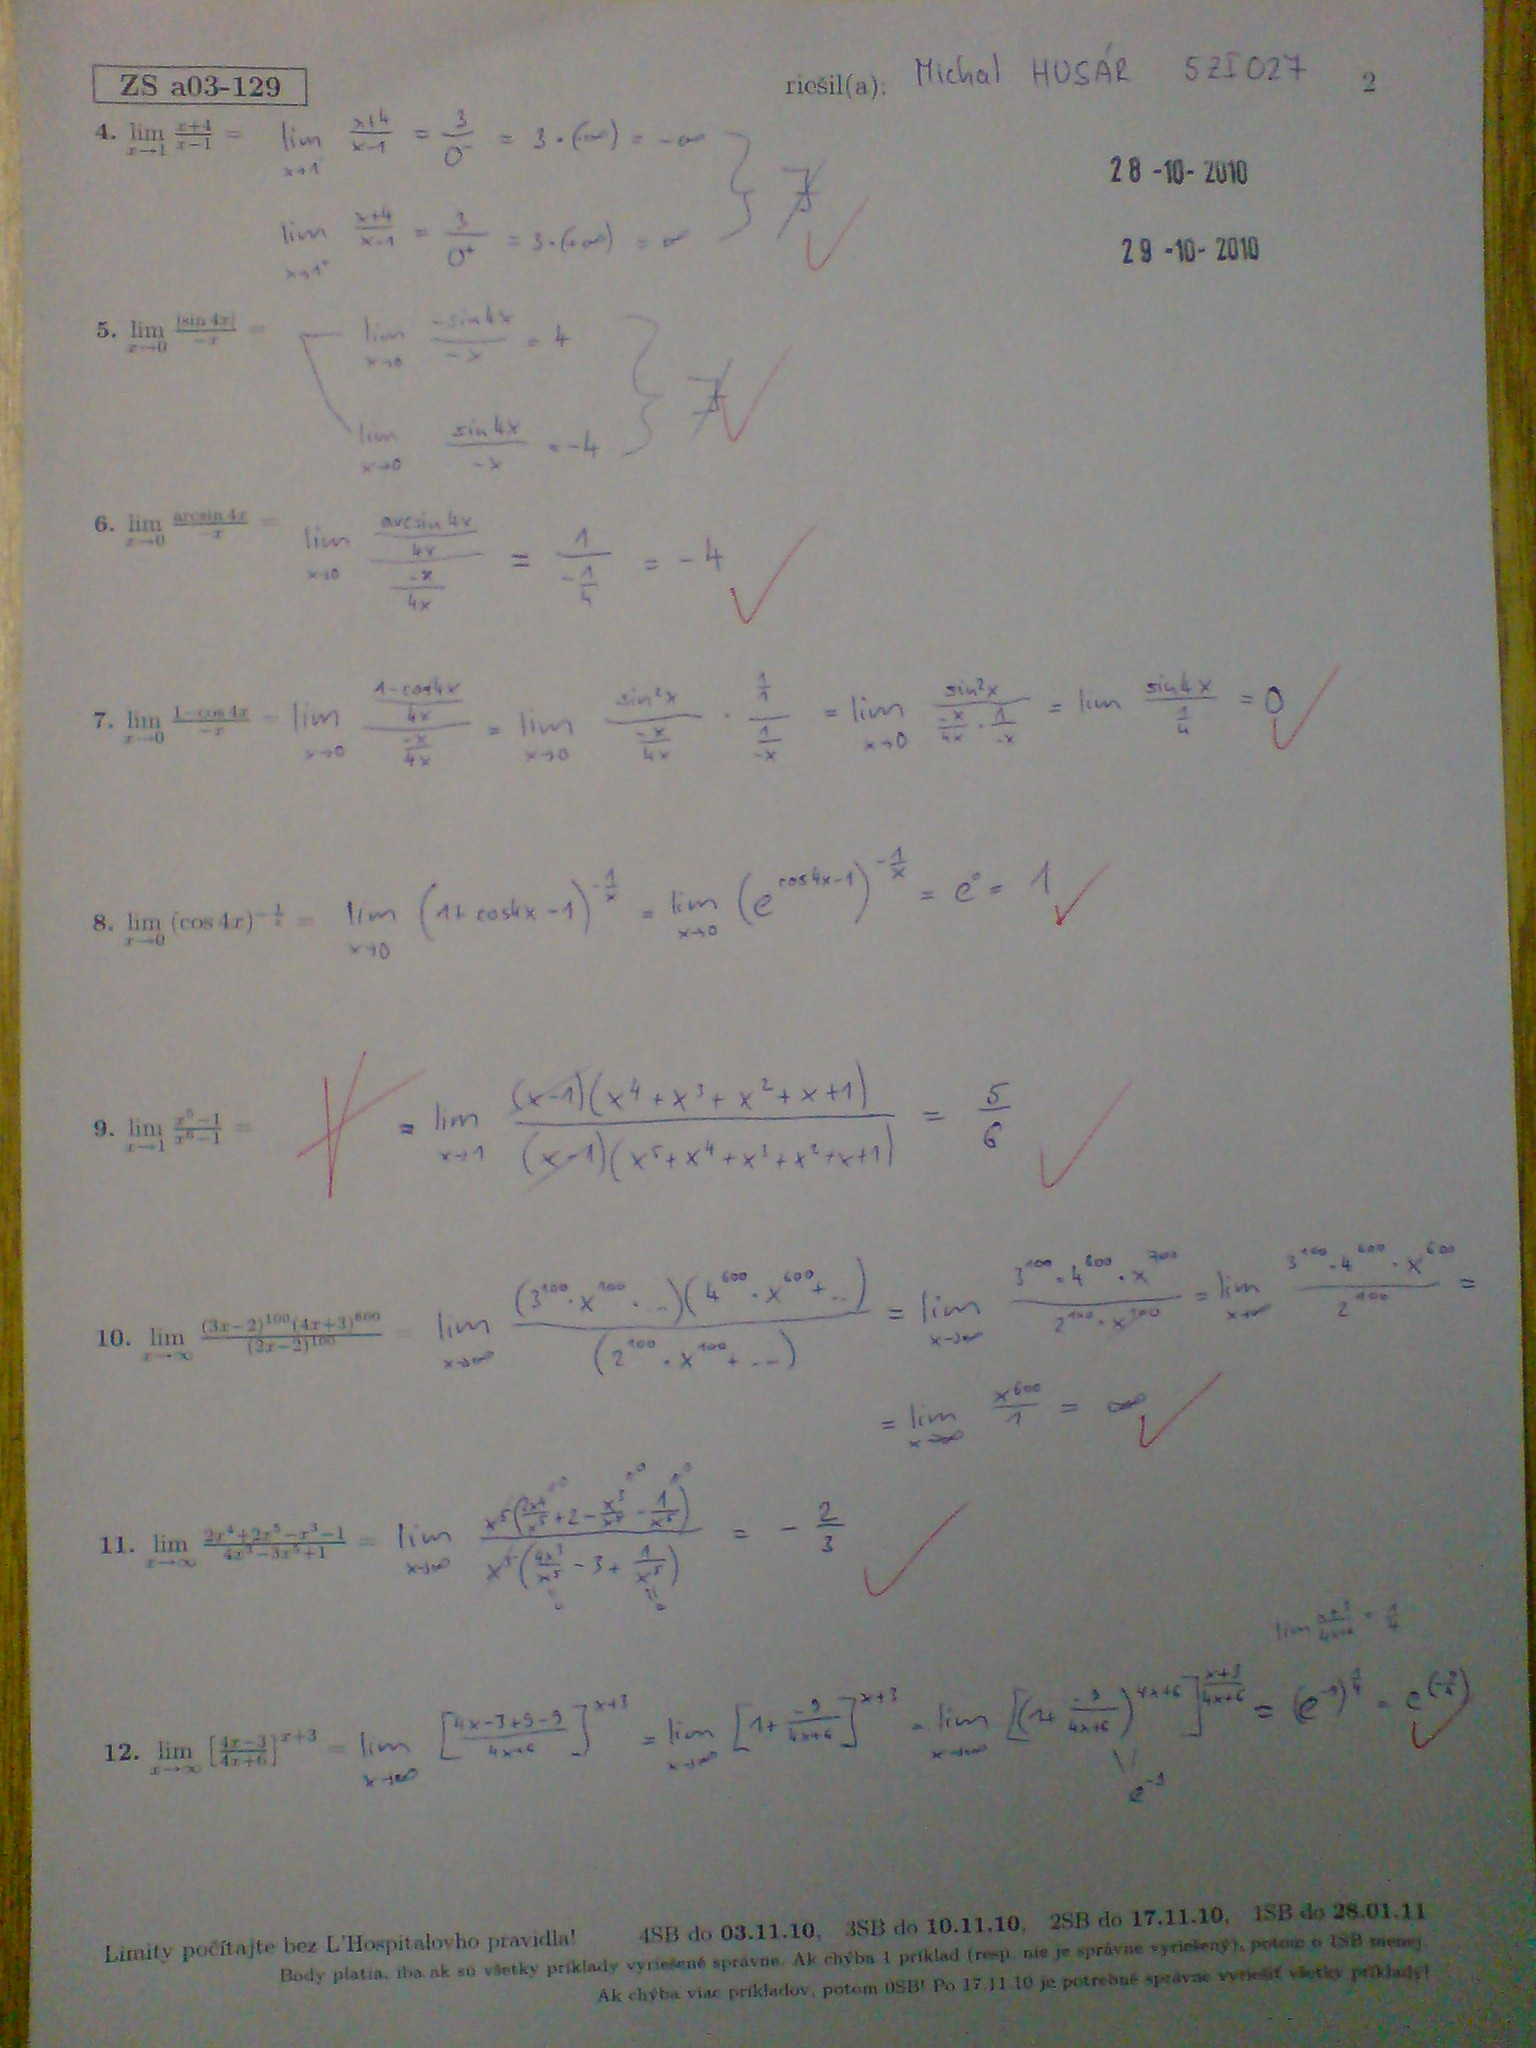 ZS a03-129 riešil(a): Michal HUSÁR 5ZI027 2
28-10-2010
29-10-2010
4. lim x→1 (x+4)/(x−1) = lim x→1⁻ (x+4)/(x−1) = 3/0⁻ = 3·(−∞) = −∞
lim x→1⁺ (x+4)/(x−1) = 3/0⁺ = 3·(+∞) = ∞ } ∄
5. lim x→0 |sin 4x|/(−x) = lim x→0 (−sin 4x)/(−x) = 4
lim x→0 (sin 4x)/(−x) = −4 } ∄
6. lim x→0 (arcsin 4x)/(−x) = lim x→0 ((arcsin 4x)/(4x))/((−x)/(4x)) = 1/(−1/4) = −4
7. lim x→0 (1−cos 4x)/(−x) = lim x→0 ((1−cos4x)/(4x))/((−x)/(4x)) = lim x→0 (sin²x)/((−x)/(4x)) · (1/1)/(1/(−x)) = lim x→0 (sin²x)/((−x)/(4x) · 1/(−x)) = lim (sin 4x)/(1/4) = 0
8. lim x→0 (cos 4x)^(−1/x) = lim x→0 (1+cos4x−1)^(−1/x) = lim x→0 (e^(cos4x−1))^(−1/x) = e⁰ = 1
9. lim x→1 (x⁵−1)/(x⁶−1) = = lim x→1 ((x−1)(x⁴+x³+x²+x+1))/((x−1)(x⁵+x⁴+x³+x²+x+1)) = 5/6
10. lim x→∞ ((3x−2)¹⁰⁰(4x+3)⁶⁰⁰)/(2x−2)¹⁰⁰ = lim x→∞ ((3¹⁰⁰·x¹⁰⁰·...)(4⁶⁰⁰·x⁶⁰⁰+..))/(2¹⁰⁰·x¹⁰⁰+...) = lim x→∞ (3¹⁰⁰·4⁶⁰⁰·x⁷⁰⁰)/(2¹⁰⁰·x¹⁰⁰) = lim x→∞ (3¹⁰⁰·4⁶⁰⁰·x⁶⁰⁰)/2¹⁰⁰ =
= lim x→∞ x⁶⁰⁰/1 = ∞
11. lim x→∞ (2x⁴+2x⁵−x³−1)/(4x³−3x⁵+1) = lim x→∞ (x⁵(2x⁴/x⁵+2−x³/x⁵−1/x⁵))/(x⁵(4x³/x⁵−3+1/x⁵)) = −2/3
12. lim x→∞ [(4x−3)/(4x+6)]^(x+3) = lim x→∞ [(4x−3+9−9)/(4x+6)]^(x+3) = lim x→∞ [1+(−9)/(4x+6)]^(x+3) = lim x→∞ [(1+(−9)/(4x+6))^(4x+6)]^((x+3)/(4x+6)) = (e⁻⁹)^(1/4) = e^(−9/4)
e⁻⁹
Limity počítajte bez L'Hospitalovho pravidla! 4SB do 03.11.10, 3SB do 10.11.10, 2SB do 17.11.10, 1SB do 28.01.11
Body platia, iba ak sú všetky príklady vyriešené správne. Ak chýba 1 príklad (resp. nie je správne vyriešený), potom o 1SB menej.
Ak chýba viac príkladov, potom 0SB! Po 17.11.10 je potrebné správne vyriešiť všetky príklady!